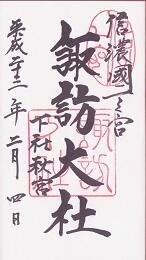 信濃國一之宮
諏訪大社
下社秋宮
平成二十二年二月四日